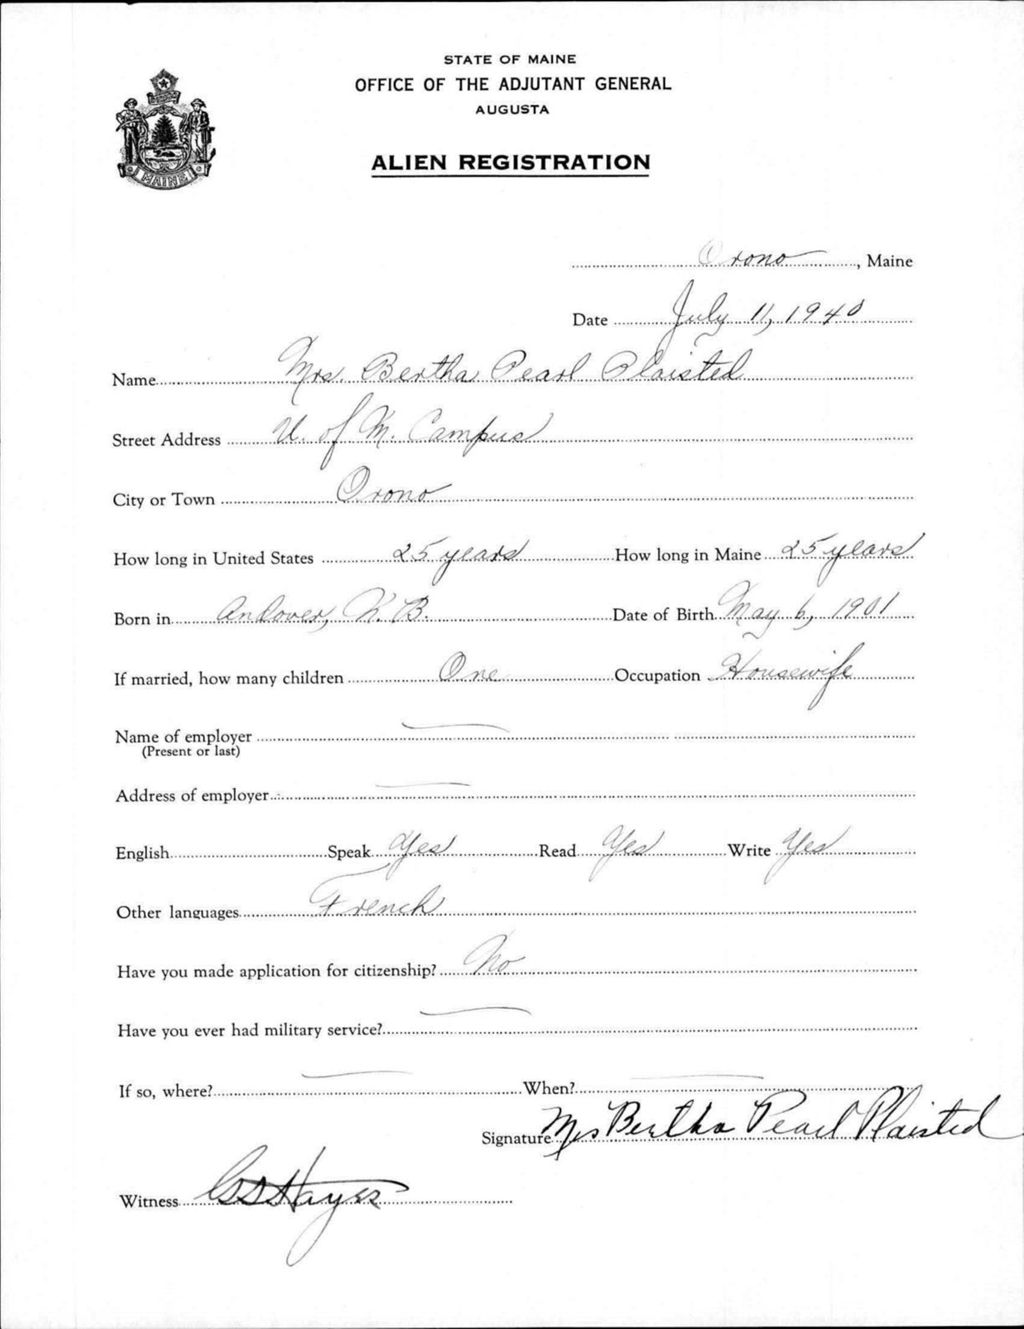 STATE OF MAINE
OFFICE OF THE ADJUTANT GENERAL
AUGUSTA
MAINE
ALIEN REGISTRATION
Orono, Maine
Date July 11, 1940
Name Mrs. Bertha Pearl Plaisted
Street Address U. of M. Campus
City or Town Orono
How long in United States 25 years How long in Maine 25 years
Born in Andover, N.B. Date of Birth May 6, 1901
If married, how many children One Occupation Housewife
Name of employer —
(Present or last)
Address of employer —
English Speak Yes Read Yes Write Yes
Other languages French
Have you made application for citizenship? No
Have you ever had military service? —
If so, where? — When? —
Signature Mrs Bertha Pearl Plaisted
Witness Hayes